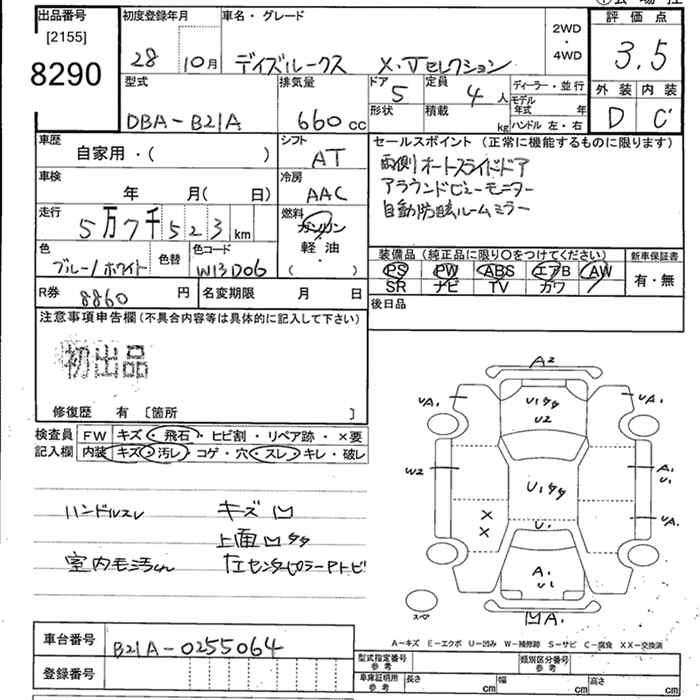 出品番号
[2155]
8290
初度登録年月
28 10月
車名・グレード
デイズルークス X・Vセレクション
2WD
・
4WD
評価点
3.5
外装 内装
D C
型式
DBA-B21A
排気量
660 cc
ドア 5
形状
定員 4 人
積載 kg
ディーラー・並行
モデル年式 年
ハンドル 左・右
車歴
自家用・( )
シフト
AT
車検
年 月( 日)
冷房
AAC
走行
5万7千523 km
燃料
ガソリン
軽・油
( )
色
ブルー/ホワイト
色替
色コード
W13D06
セールスポイント(正常に機能するものに限ります)
両側オートスライドドア
アラウンドビューモニター
自動防眩ルームミラー
装備品(純正品に限り○をつけてください)
PS PW ABS エアB AW
SR ナビ TV カワ
新車保証書
有・無
R券 8860 円
名変期限 月 日
後日品
注意事項申告欄(不具合内容等は具体的に記入して下さい)
初出品
修復歴 有 〔箇所 〕
検査員記入欄
FW キズ・飛石・ヒビ割・リペア跡・×要
内装 キズ・汚レ・コゲ・穴・スレ・キレ・破レ
ハンドルスレ キズ凹
上面凹タタ
室内モミ汚れ 左センターピラーアトビ
A2
UA1 U1タタ UA1
U2
W2 U1タタ A1
U1
X
X U1 UA1
A1
U1
スペア 凹A1
A-キズ E-エクボ U-凹み W-補修跡 S-サビ C-腐食 XX-交換済
車台番号 B21A-0255064
登録番号
型式指定番号 参考
類別区分番号 参考
車庫証明用 参考 長さ cm 幅 cm 高さ cm